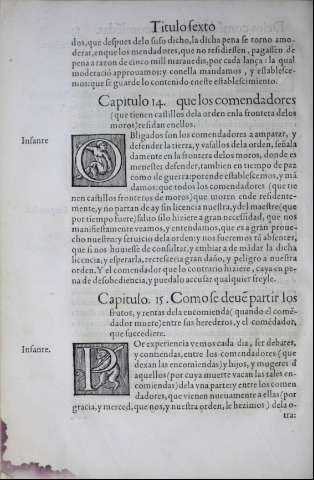 Titulo sexto
dos, que despues delo suso dicho, la dicha pena se torno amo-
derar, en que los mendadores, que no residiessen, pagassen de
pena a razon de cinco mill marauedis, por cada lança: la qual
moderació approuamos: y conella mandamos, y establesce-
mos: que se guarde lo contenido en este establescimiento.
Capitulo 14. que los comendadores
(que tienen castillos dela orden enla frontera delos
moros) residan enellos.
Infante
OBligados son los comendadores a amparar, y
defender la tierra, y vasallos dela orden, señala
damente en la frontera delos moros, donde es
menester defender, tambien en tiempo de paz
como de guerra: porende establescemos, y má
damos: que todos los comendadores (que tie
nen castillos fronteros de moros) que moren ende residente-
mente, y no partan de ay sin licencia nuestra, y del maestre (que
por tiempo fuere) saluo si lo hiziere a gran necessidad, que nos
manifiestamente veamos, y entendamos, que es a gran proue-
cho nuestro: y seruicio dela orden: y nos fueremos tá absentes,
que si nos houuesse de consultar, y embiar a demádar la dicha
licencia, y esperarla, recresceria gran daño, y peligro a nuestra
orden. Y el comendador que lo contrario hiziere, caya en pe-
na de desobediencia, y puedalo accusar qualquier freyle.
Capitulo. 15. Como se deué partir los
frutos, y rentas dela encomienda (quando el comé-
dador muere) entre sus herederos, y el comédador,
que succediere.
Infante.
POr experiencia vemos cada dia, ser debates,
y contiendas, entre los comendadores (que
dexan las encomiendas) y hijos, y mugeres d
aquellos (por cuya muerte vacan las tales en-
comiendas) dela vna parte y entre los comen
dadores, que vienen nueuamente a ellas (por
gracia, y merced, que nos, y nuestra orden, le hezimos) dela o-
tra: